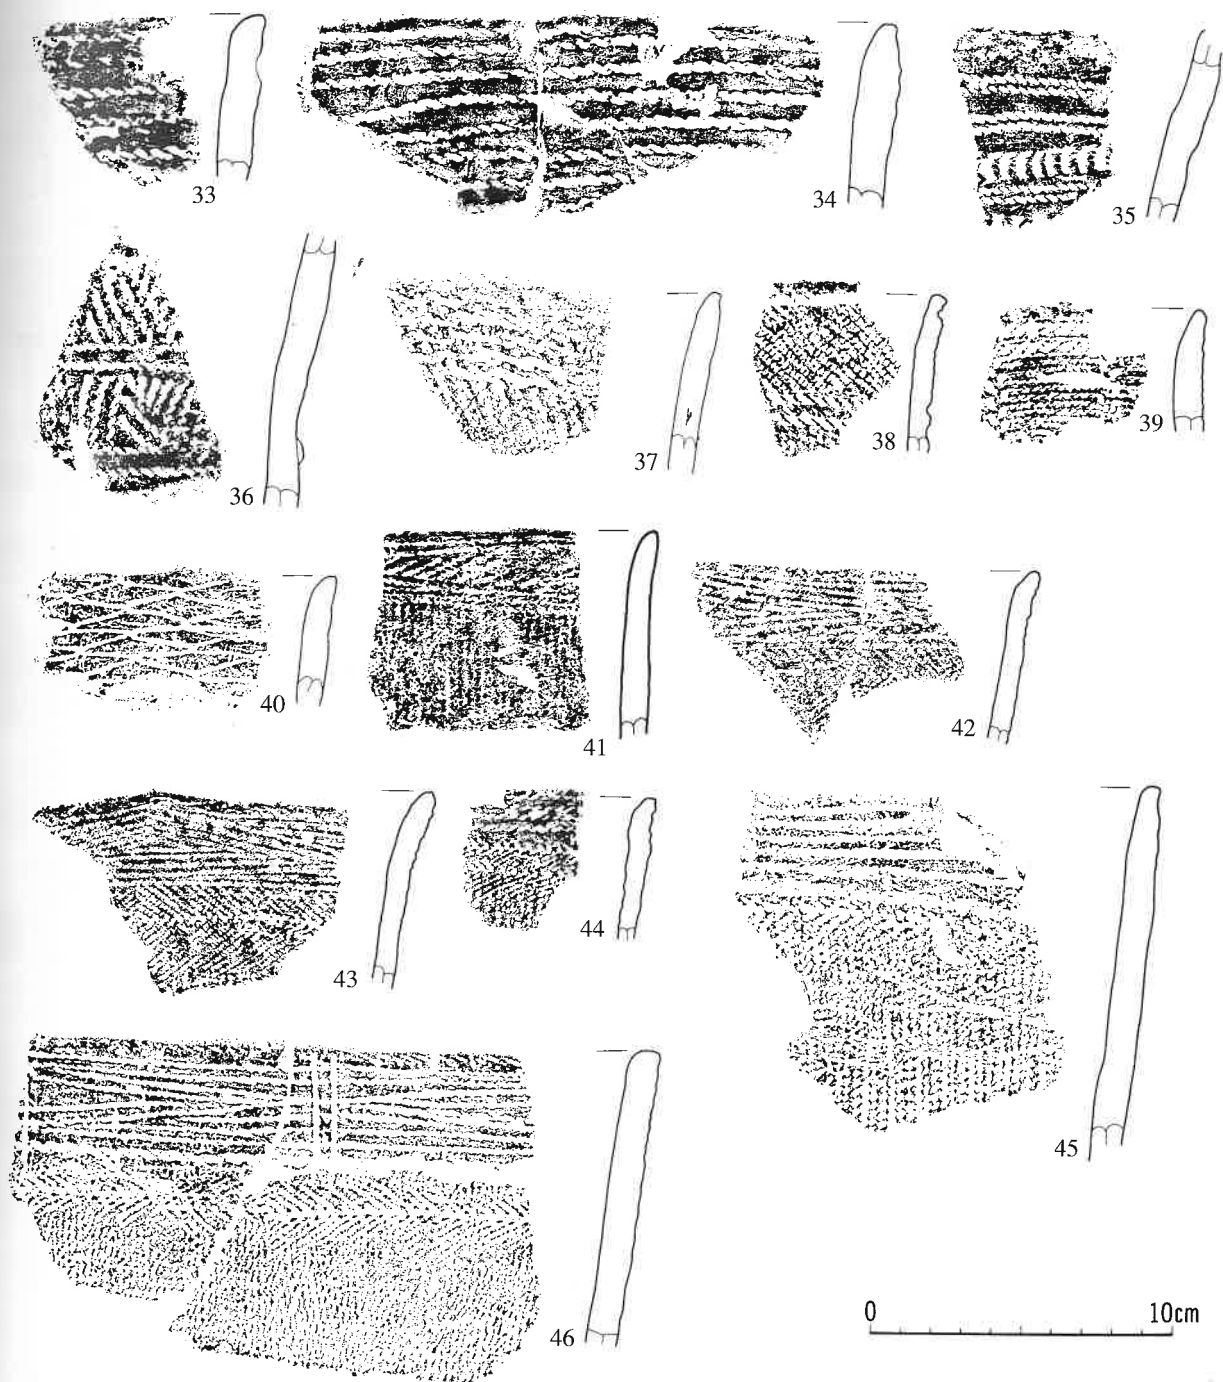 33
34
35
36
37
38
39
40
41
42
43
44
45
46
0 10cm